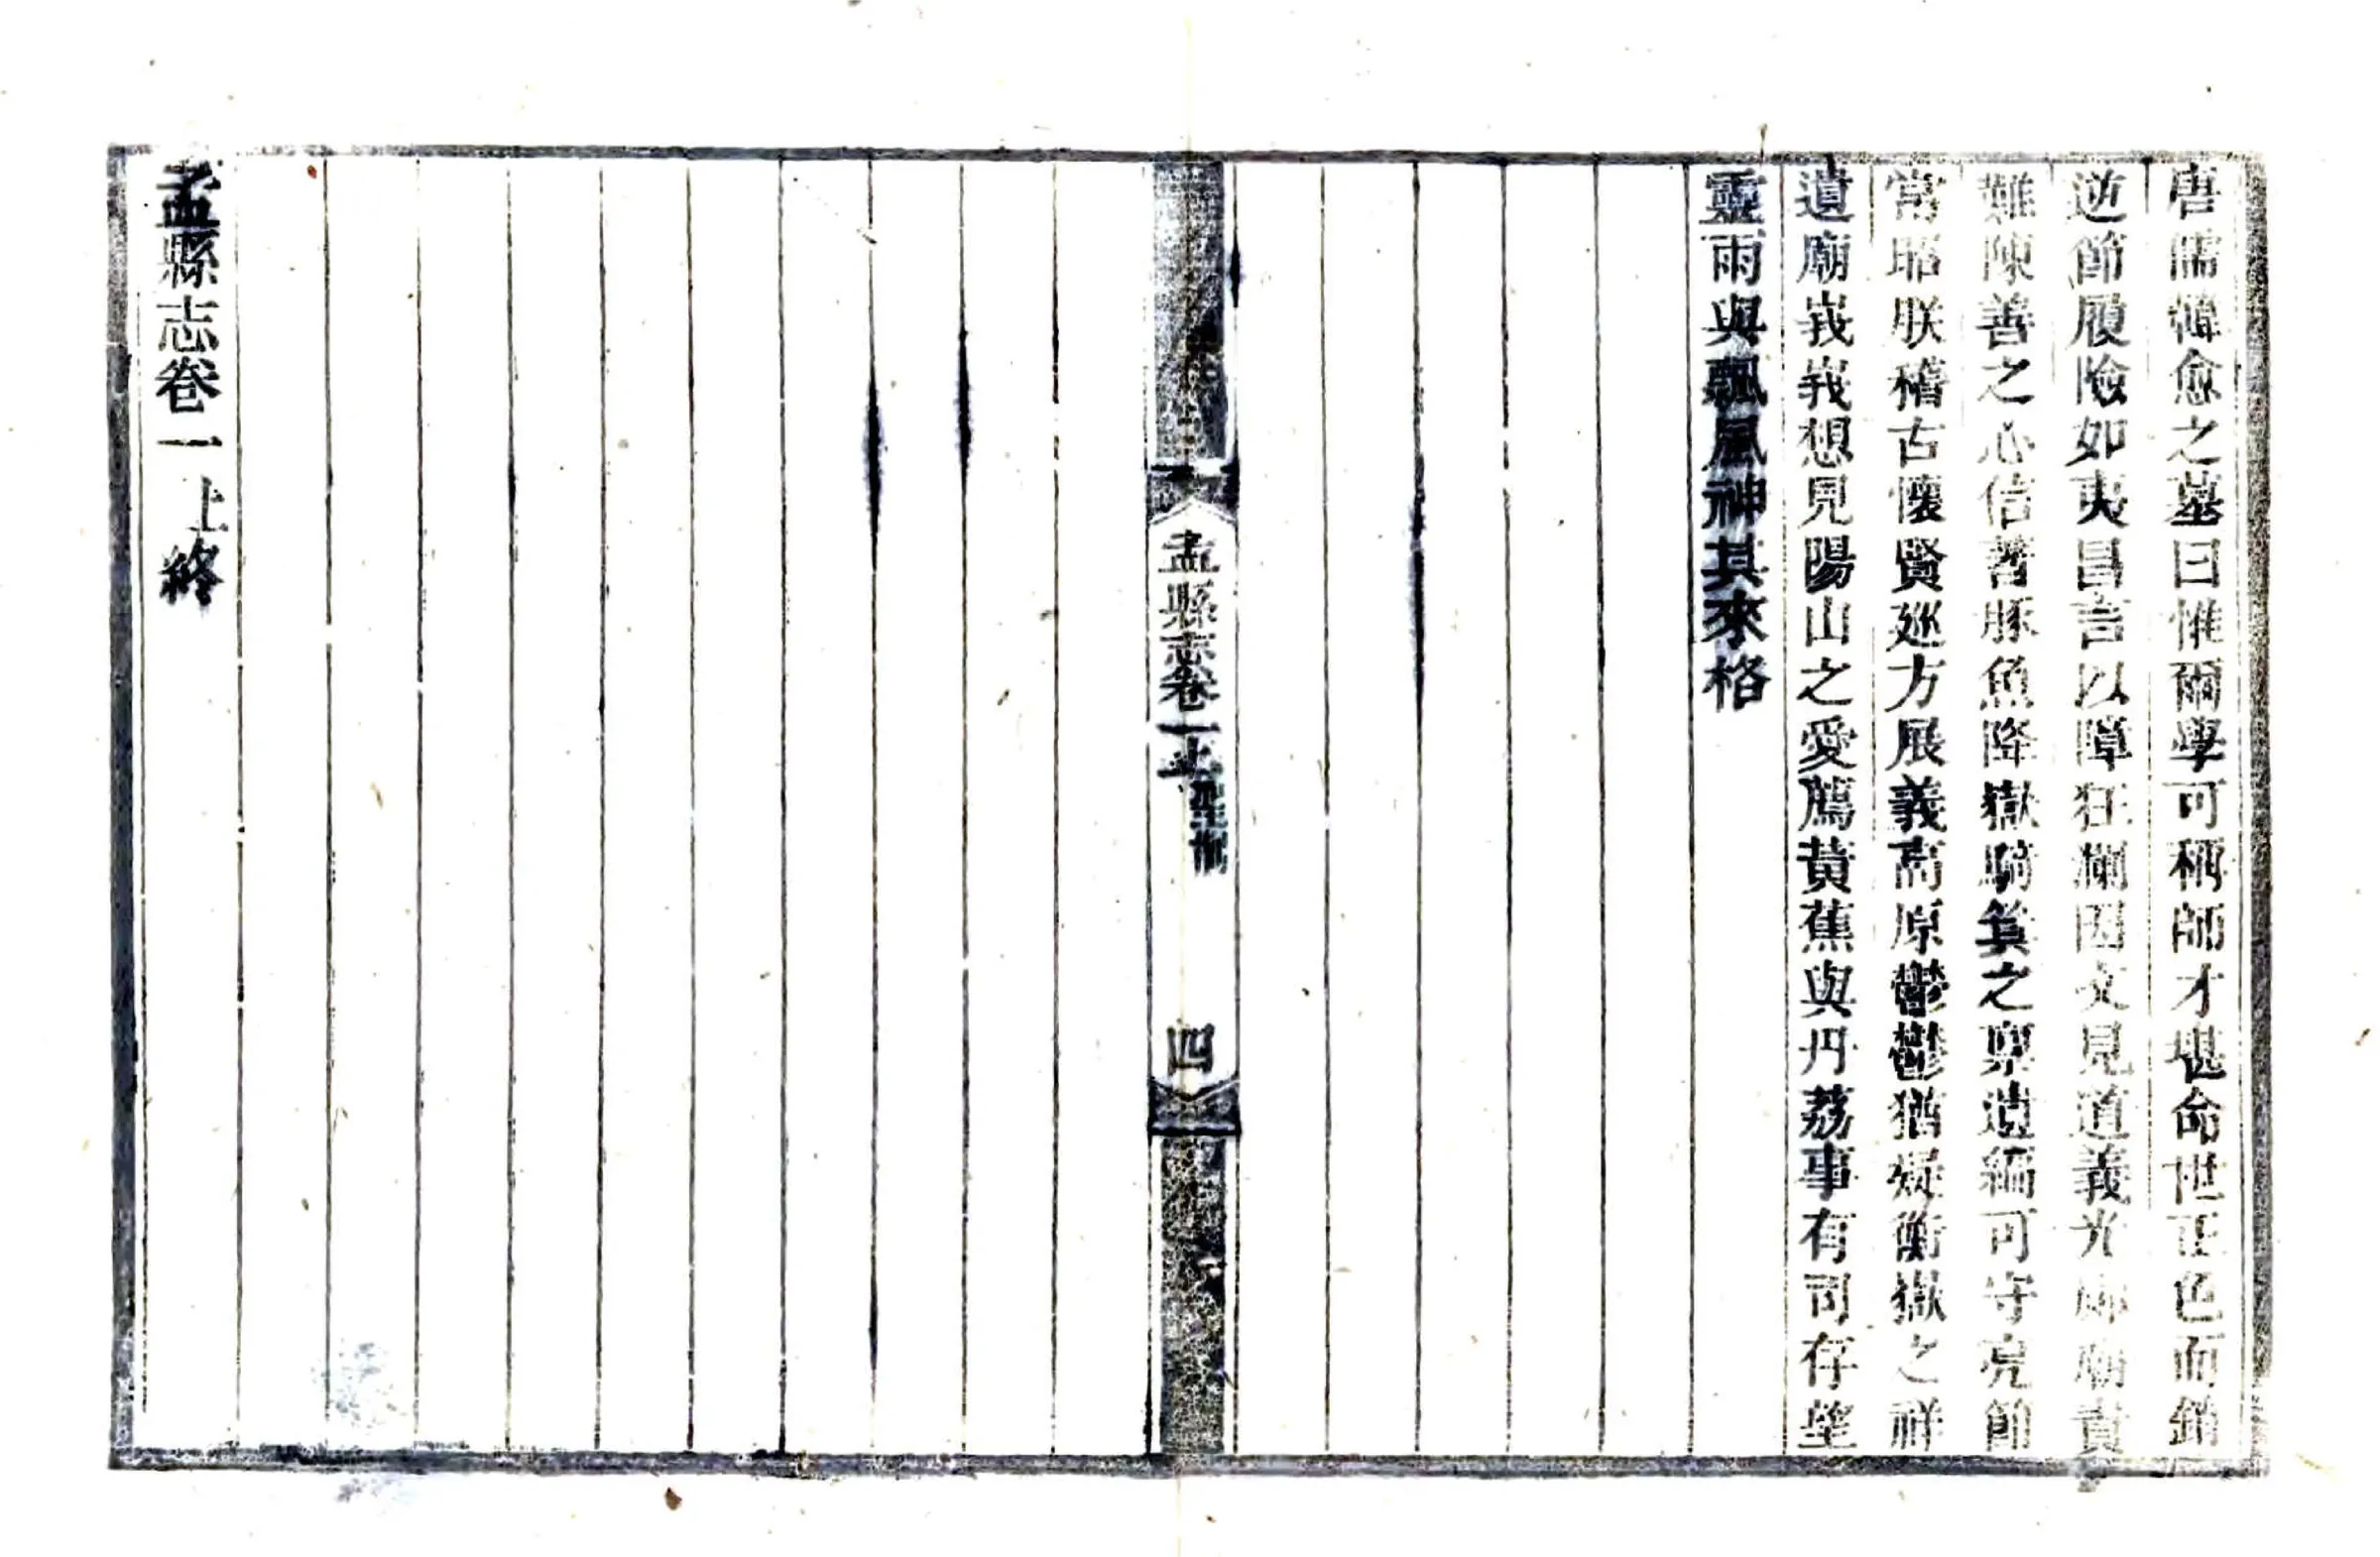 唐儒韓愈之墓曰惟爾學可稱師才堪命世正色而銷
逆節履險如夷昌言以障狂瀾因文見道義光廊廟責
難陳善之心信著豚魚降嶽騎箕之稟遺編可守亮節
常昭朕稽古懷賢廵方展義高原鬱鬱猶疑衡嶽之祥
遺廟峩峩想見陽山之愛薦黃蕉與丹荔事有司存埀
靈雨與飄風神其來格
孟縣志卷一上
四
孟縣志卷一上終